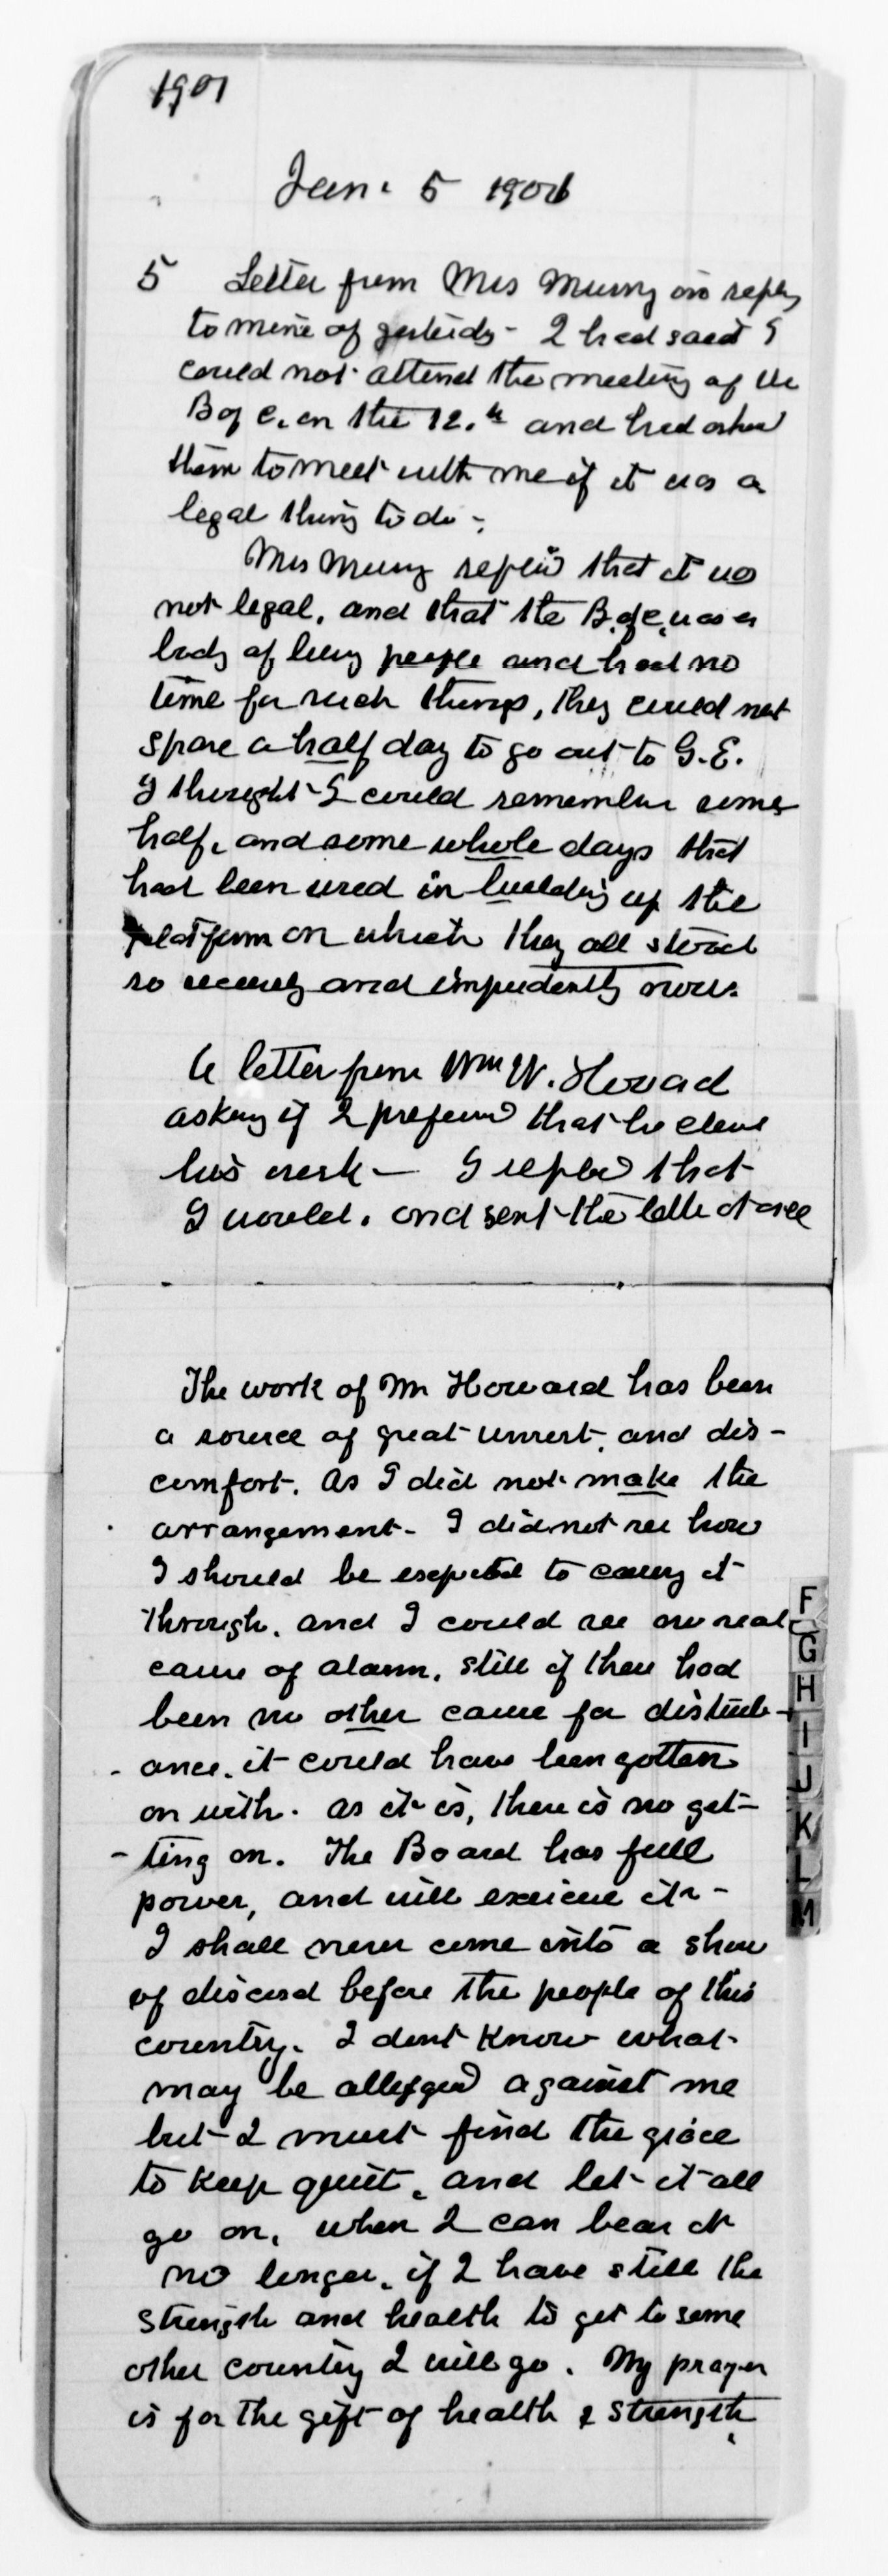 1901
Jan. 5 1901
5 Letter from Mrs Mussy in reply
to mine of yesterdy - I had said I
could not attend the meeting of the
B of C. on the 12.th and had asked
them to meet with me if it was a
legal thing to do -
Mrs Mussy replied that it was
not legal, and that the B. of C. was a
body of busy people and had no
time for such things, they could not
spare a half day to go out to G.E.
I thought I could remember some
half, and some whole days that
had been used in building up the
platform on which they all stood
so securely and impudently now.
A letter from Wm W. Howard
asking if I prefered that he close
his work - I replied that
I would. and sent the letter at once
The work of Mr Howard has been
a source of great unrest, and dis-
comfort. As I did not make the
arrangement - I did not see how
I should be expected to carry it
through. and I could see no real
cause of alarm, still if there had
been no other cause for disturb-
- ance. it could have been gotten
on with. as it is, there is no get-
- ting on. The Board has full
power, and will exercise it -
I shall never come into a show
of discord before the people of this
country. I dont know what
may be alleged against me
but I must find the grace
to keep quiet, and let it all
go on, when I can bear it
no longer, if I have still the
strength and health to get to some
other country I will go. My prayer
is for the gift of health & strength
F
G
H
I
J
K
L
M